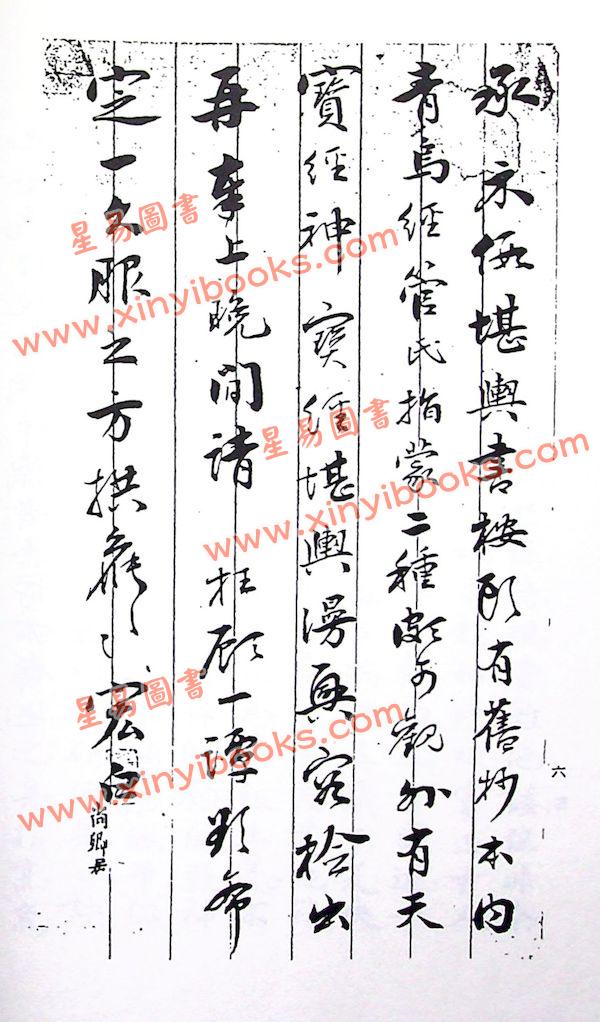 承示假堪輿書桉頭有舊抄本內
青烏經管氏指蒙二種頗可觀外有天
寶經神寶經堪輿漫興容檢出
再奉上晚間請枉顧一譚希
定一久服之方拱候〻宏白
尚卿兄
六
星易圖書
www.xinyibooks.com
星易圖書
www.xinyibooks.com
星易圖書
www.xinyibooks.com